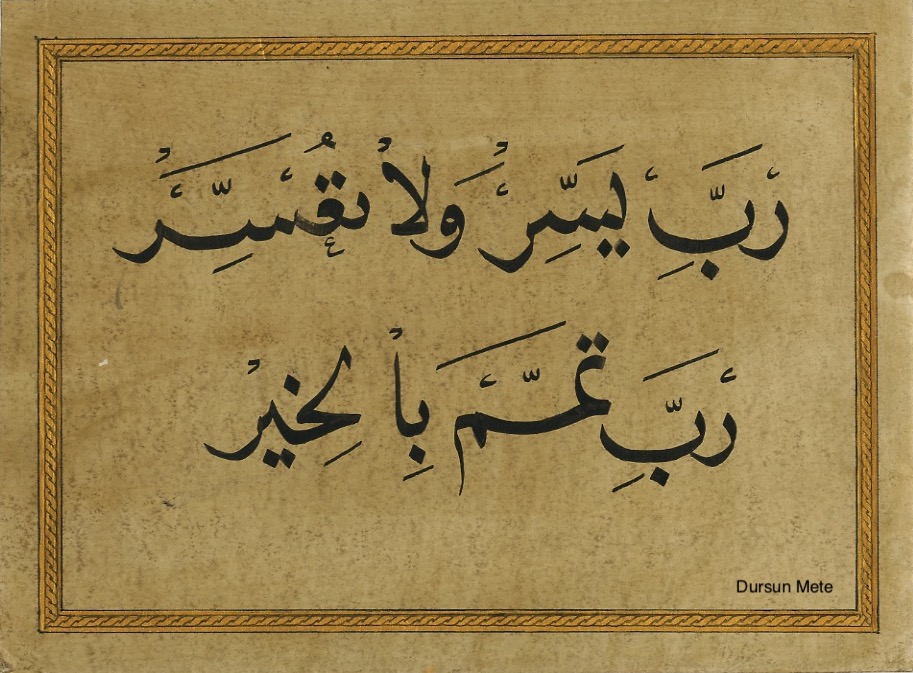 رَبِّ يَسِّرْ وَلَا تُعَسِّرْ
رَبِّ تَمِّمْ بِالْخَيْرِ
Dursun Mete